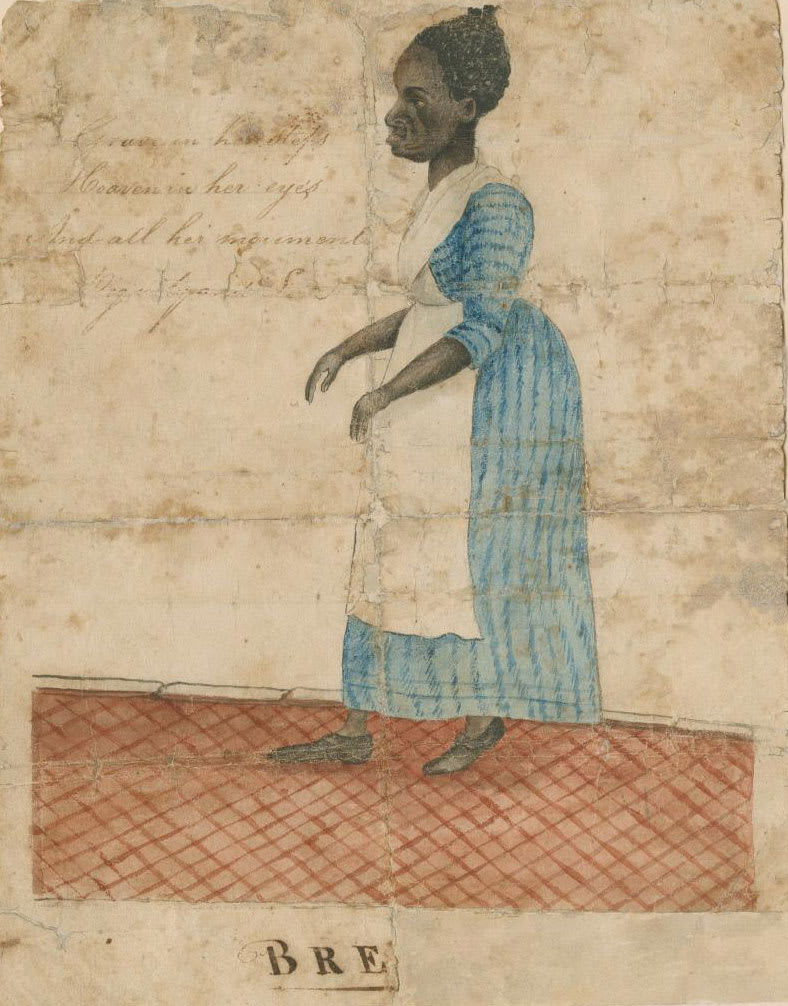 Grave in her steps
Heaven in her eyes
And all her movement
BRE